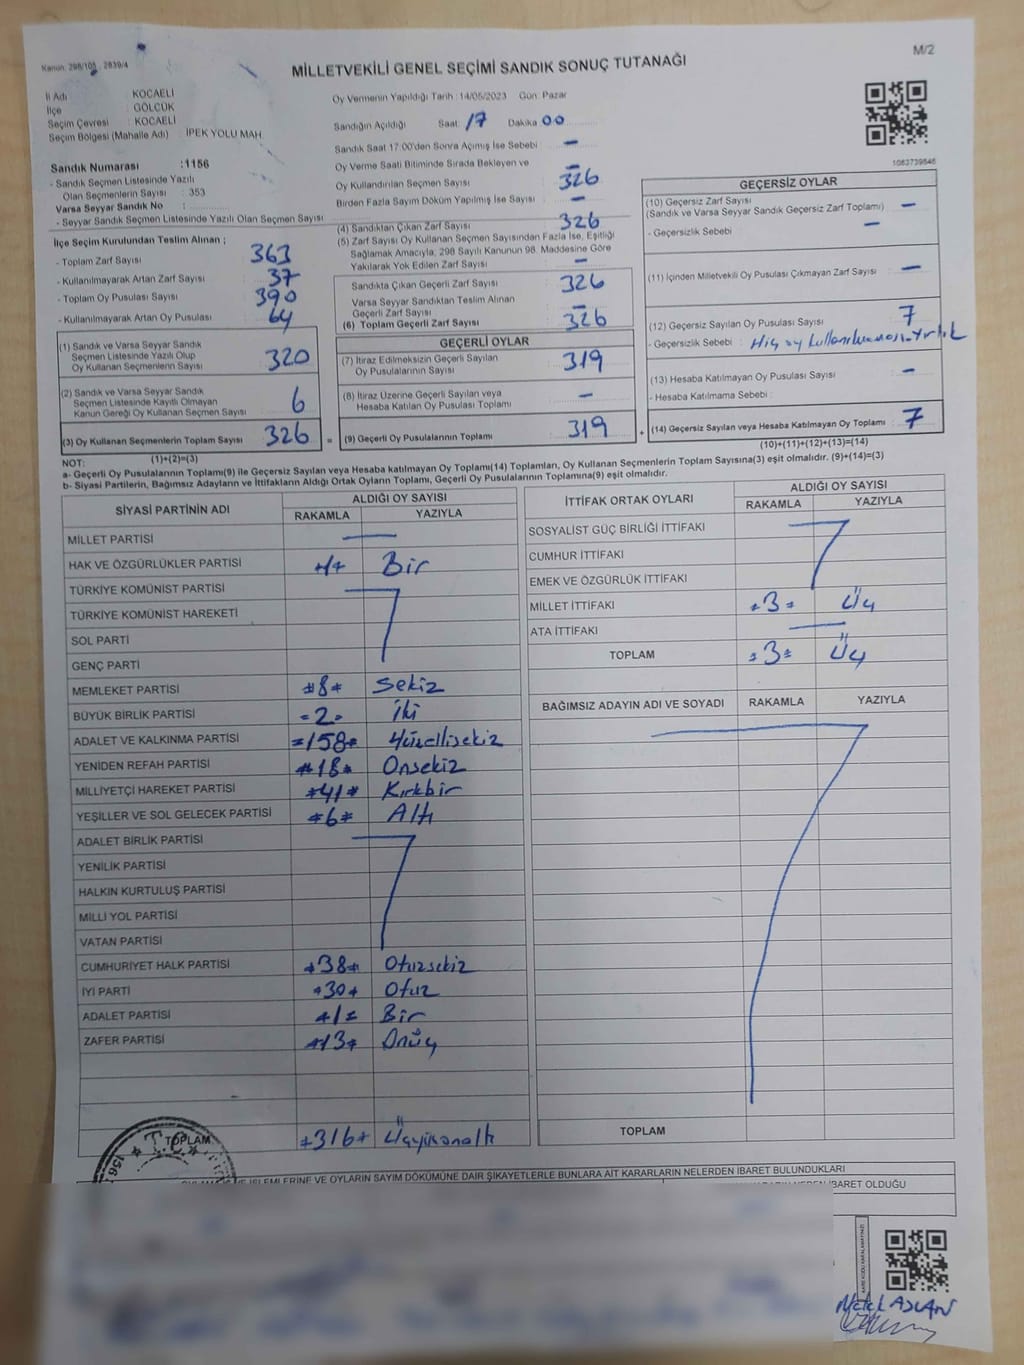 M/2
Kanun, 298/105 - 2839/4
MİLLETVEKİLİ GENEL SEÇİMİ SANDIK SONUÇ TUTANAĞI
İl Adı KOCAELİ
İlçe GÖLCÜK
Seçim Çevresi : KOCAELİ
Seçim Bölgesi (Mahalle Adı) İPEK YOLU MAH.
Sandık Numarası :1156
- Sandık Seçmen Listesinde Yazılı
Olan Seçmenlerin Sayısı : 353
Varsa Seyyar Sandık No :
- Seyyar Sandık Seçmen Listesinde Yazılı Olan Seçmen Sayısı
İlçe Seçim Kurulundan Teslim Alınan ;
- Toplam Zarf Sayısı 363
- Kullanılmayarak Artan Zarf Sayısı 37
- Toplam Oy Pusulası Sayısı 390
- Kullanılmayarak Artan Oy Pusulası 64
(1) Sandık ve Varsa Seyyar Sandık
Seçmen Listesinde Yazılı Olup
Oy Kullanan Seçmenlerin Sayısı 320
(2) Sandık ve Varsa Seyyar Sandık
Seçmen Listesinde Kayıtlı Olmayan
Kanun Gereği Oy Kullanan Seçmen Sayısı 6
(3) Oy Kullanan Seçmenlerin Toplam Sayısı 326 =
(1)+(2)=(3)
Oy Vermenin Yapıldığı Tarih : 14/05/2023 Gün: Pazar
Sandığın Açıldığı Saat: 17 Dakika 00
Sandık Saat 17:00'den Sonra Açılmış İse Sebebi -
Oy Verme Saati Bitiminde Sırada Bekleyen ve
Oy Kullandırılan Seçmen Sayısı -
326
Birden Fazla Sayım Döküm Yapılmış İse Sayısı -
(4) Sandıktan Çıkan Zarf Sayısı 326
(5) Zarf Sayısı Oy Kullanan Seçmen Sayısından Fazla İse, Eşitliği
Sağlamak Amacıyla, 298 Sayılı Kanunun 98. Maddesine Göre
Yakılarak Yok Edilen Zarf Sayısı -
Sandıkta Çıkan Geçerli Zarf Sayısı 326
Varsa Seyyar Sandıktan Teslim Alınan
Geçerli Zarf Sayısı -
(6) Toplam Geçerli Zarf Sayısı 326
GEÇERLİ OYLAR
(7) İtiraz Edilmeksizin Geçerli Sayılan
Oy Pusulalarının Sayısı 319
(8) İtiraz Üzerine Geçerli Sayılan veya
Hesaba Katılan Oy Pusulası Toplamı -
(9) Geçerli Oy Pusulalarının Toplamı 319 +
1083739846
GEÇERSİZ OYLAR
(10) Geçersiz Zarf Sayısı
(Sandık ve Varsa Seyyar Sandık Geçersiz Zarf Toplamı) -
- Geçersizlik Sebebi : -
(11) İçinden Milletvekili Oy Pusulası Çıkmayan Zarf Sayısı -
(12) Geçersiz Sayılan Oy Pusulası Sayısı 7
- Geçersizlik Sebebi : Hiç oy kullanılmamış
(13) Hesaba Katılmayan Oy Pusulası Sayısı -
- Hesaba Katılmama Sebebi :
(14) Geçersiz Sayılan veya Hesaba Katılmayan Oy Toplamı 7
(10)+(11)+(12)+(13)=(14)
NOT:
a- Geçerli Oy Pusulalarının Toplamı(9) ile Geçersiz Sayılan veya Hesaba katılmayan Oy Toplamı(14) Toplamları, Oy Kullanan Seçmenlerin Toplam Sayısına(3) eşit olmalıdır. (9)+(14)=(3)
b- Siyasi Partilerin, Bağımsız Adayların ve İttifakların Aldığı Ortak Oyların Toplamı, Geçerli Oy Pusulalarının Toplamına(9) eşit olmalıdır.
SİYASİ PARTİNİN ADI ALDIĞI OY SAYISI
RAKAMLA YAZIYLA
MİLLET PARTİSİ
HAK VE ÖZGÜRLÜKLER PARTİSİ 1 Bir
TÜRKİYE KOMÜNİST PARTİSİ
TÜRKİYE KOMÜNİST HAREKETİ
SOL PARTİ
GENÇ PARTİ
MEMLEKET PARTİSİ =8= Sekiz
BÜYÜK BİRLİK PARTİSİ =2= İki
ADALET VE KALKINMA PARTİSİ =158= Yüzellisekiz
YENİDEN REFAH PARTİSİ =18= Onsekiz
MİLLİYETÇİ HAREKET PARTİSİ =41= Kırkbir
YEŞİLLER VE SOL GELECEK PARTİSİ =6= Altı
ADALET BİRLİK PARTİSİ
YENİLİK PARTİSİ
HALKIN KURTULUŞ PARTİSİ
MİLLİ YOL PARTİSİ
VATAN PARTİSİ
CUMHURİYET HALK PARTİSİ =38= Otuzsekiz
İYİ PARTİ =30= Otuz
ADALET PARTİSİ =1= Bir
ZAFER PARTİSİ =13= Onüç
TOPLAM =316= Üçyüzonaltı
İTTİFAK ORTAK OYLARI ALDIĞI OY SAYISI
RAKAMLA YAZIYLA
SOSYALİST GÜÇ BİRLİĞİ İTTİFAKI
CUMHUR İTTİFAKI
EMEK VE ÖZGÜRLÜK İTTİFAKI
MİLLET İTTİFAKI =3= Üç
ATA İTTİFAKI
TOPLAM =3= Üç
BAĞIMSIZ ADAYIN ADI VE SOYADI RAKAMLA YAZIYLA
TOPLAM
T.C.
İŞLEMLERİNE VE OYLARIN SAYIM DÖKÜMÜNE DAİR ŞİKAYETLERLE BUNLARA AİT KARARLARIN NELERDEN İBARET BULUNDUKLARI
İBARET OLDUĞU
ASLAN